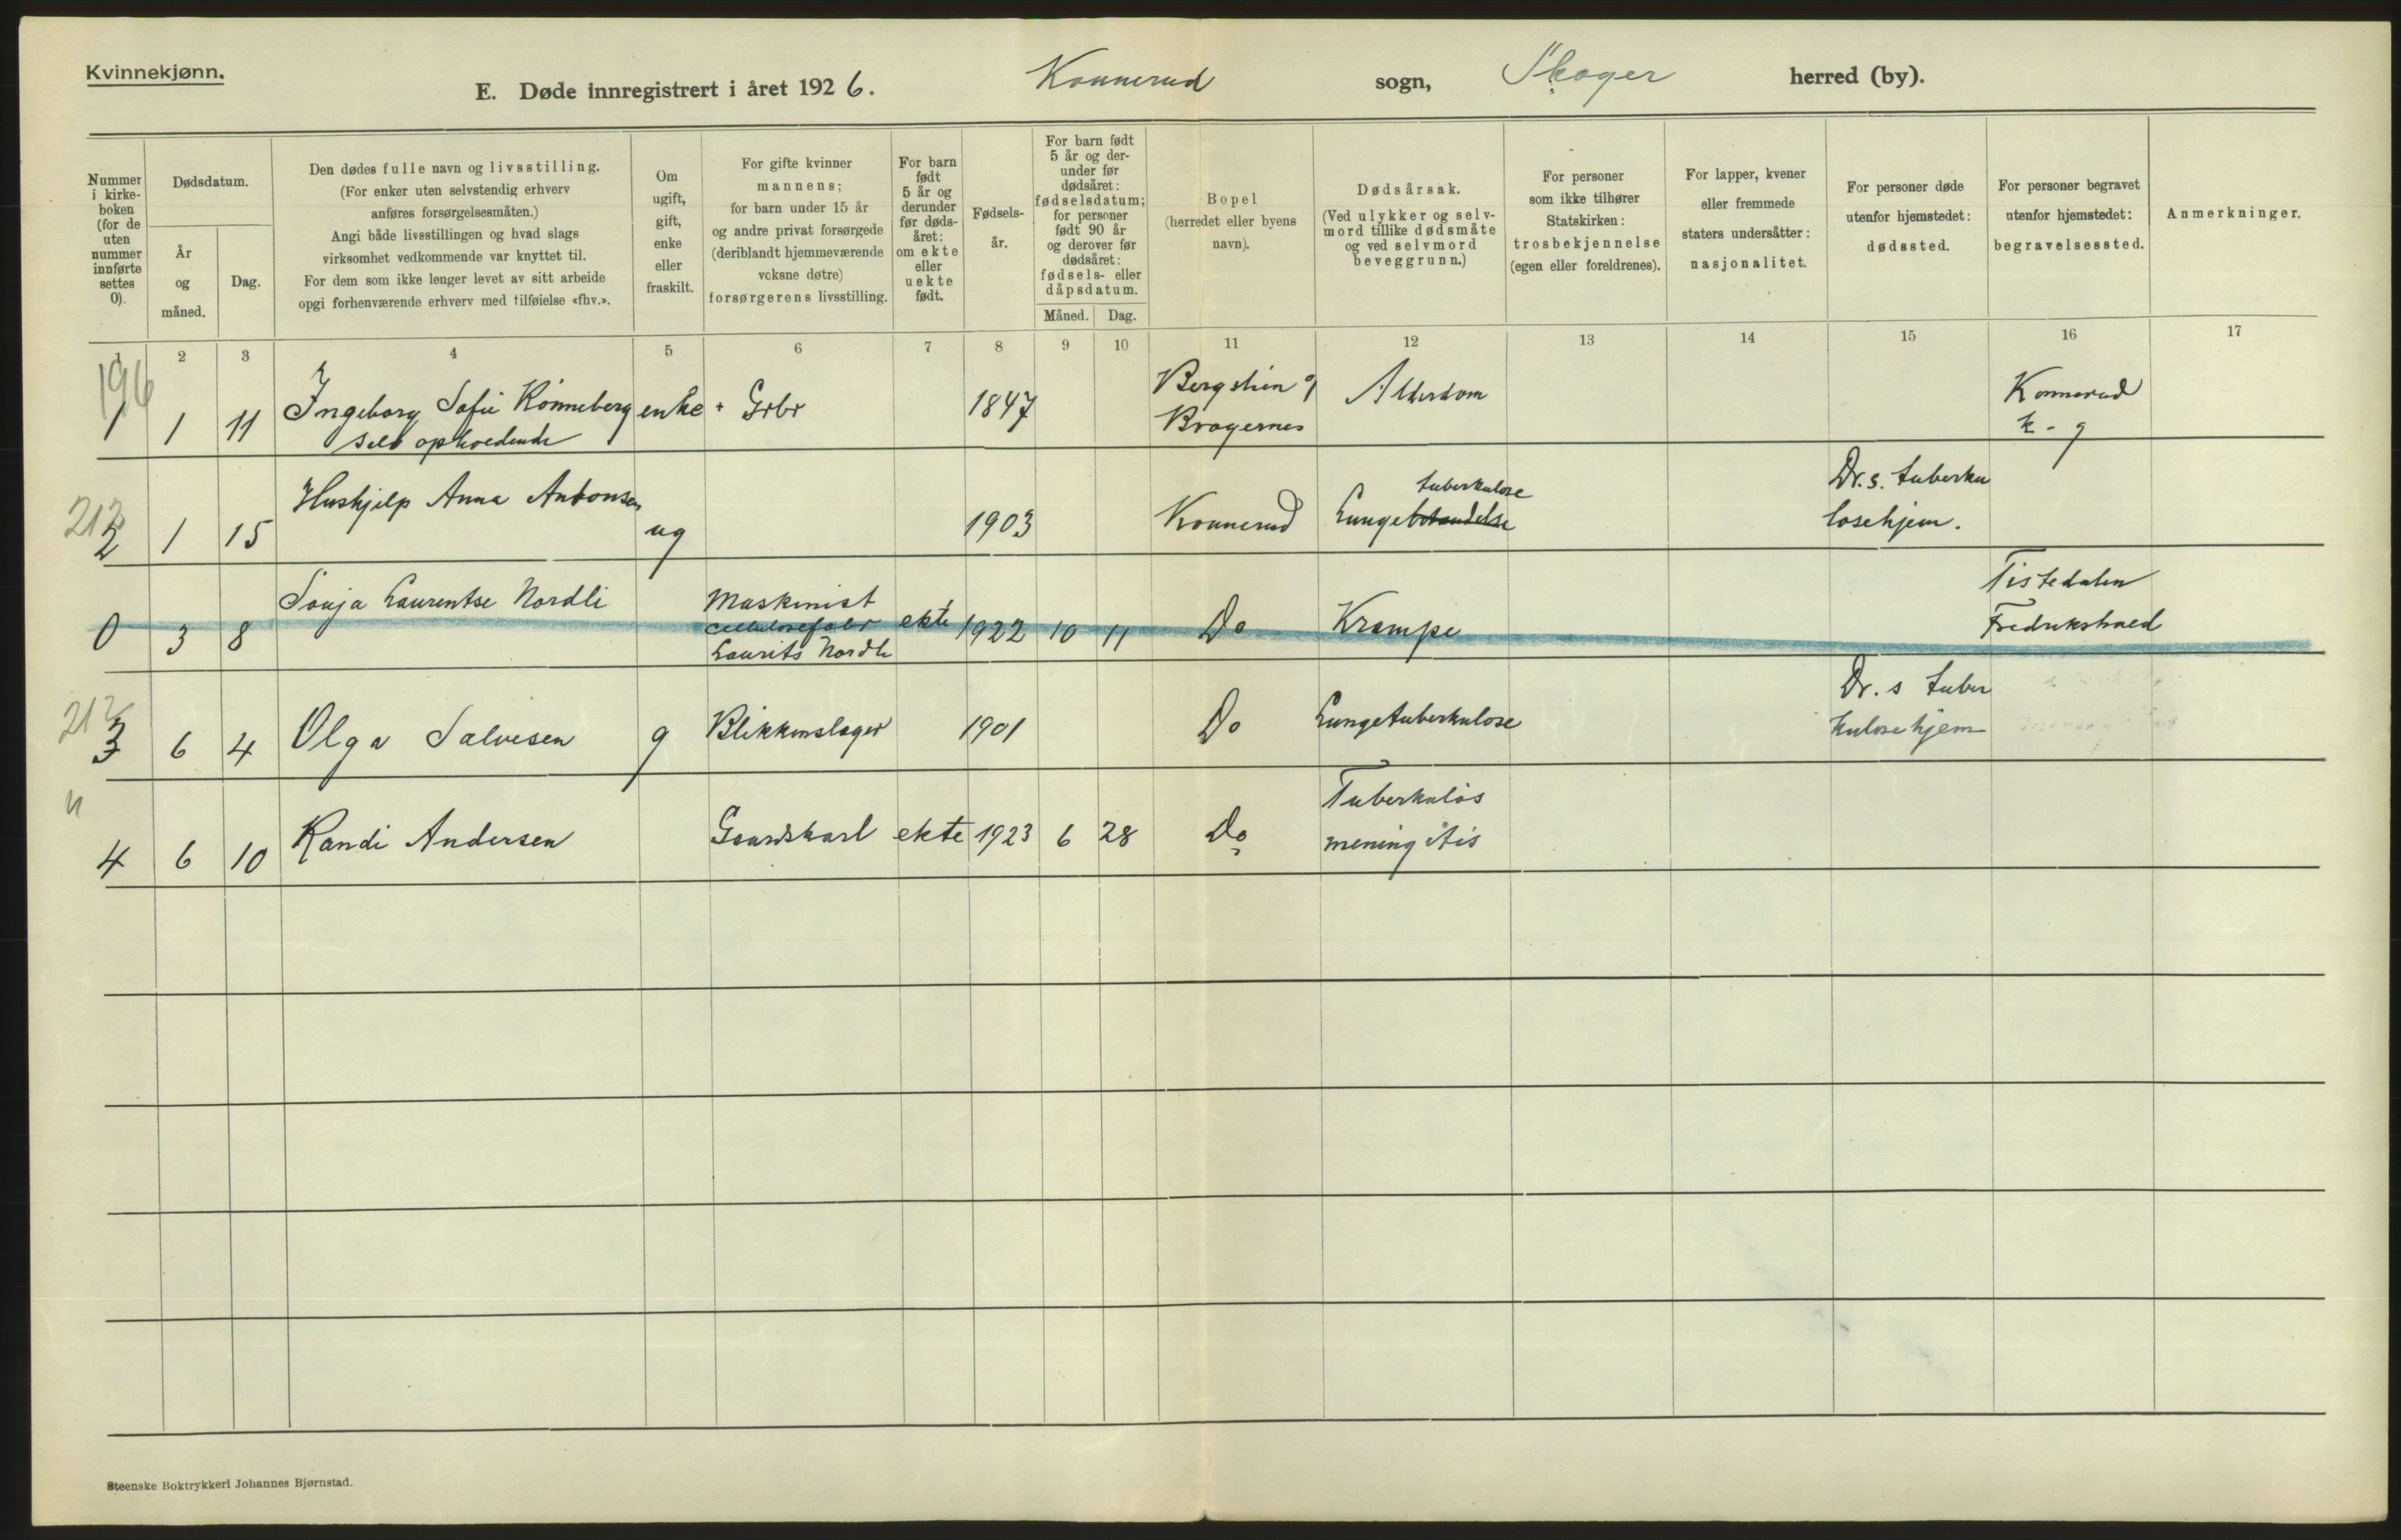 Kvinnekjønn.
E. Døde innregistrert i året 1926. Konnerud sogn, Skoger herred (by).
Nummer i kirke-boken (for de uten nummer innførte settes 0).
Dødsdatum.
År og måned.
Dag.
Den dødes fulle navn og livsstilling.
(For enker uten selvstendig erhverv
anføres forsørgelsesmåten.)
Angi både livsstillingen og hvad slags
virksomhet vedkommende var knyttet til.
For dem som ikke lenger levet av sitt arbeide
opgi forhenværende erhverv med tilføielse «fhv.».
Om
ugift,
gift,
enke
eller
fraskilt.
For gifte kvinner
mannens;
for barn under 15 år
og andre privat forsørgede
(deriblandt hjemmeværende
voksne døtre)
forsørgerens livsstilling.
For barn
født
5 år og
derunder
før døds-
året:
om ekte
eller
uekte
født.
Fødsels-
år.
For barn født
5 år og der-
under før
dødsåret:
fødselsdatum;
for personer
født 90 år
og derover før
dødsåret:
fødsels- eller
dåpsdatum.
Måned. Dag.
Bopel
(herredet eller byens
navn).
Dødsårsak.
(Ved ulykker og selv-
mord tillike dødsmåte
og ved selvmord
beveggrunn.)
For personer
som ikke tilhører
Statskirken:
trosbekjennelse
(egen eller foreldrenes).
For lapper, kvener
eller fremmede
staters undersåtter:
nasjonalitet.
For personer døde
utenfor hjemstedet:
dødssted.
For personer begravet
utenfor hjemstedet:
begravelsessted.
Anmerkninger.
1 2 3 4 5 6 7 8 9 10 11 12 13 14 15 16 17
196
1 1 11 Ingeborg Sofie Rønneberg enke + Grbr 1847 Alderdom Konnerud
Bragernes k-g
212
2 1 15 Hushjelp Anna Antonsen ug 1903 Konnerud Lunge tuberkulose Dr.s. tuberku
losehjem.
0 3 8 Sonja Laurentse Nordli Maskinist ekte 1922 10 11 Do Krampe Tistedalen
cellulosefabr Fredrikshald
Laurits Nordli
212
3 6 4 Olga Salvesen g Blikkenslager 1901 Do Lungetuberkulose Dr. s tuber
kulosehjem
4 6 10 Randi Andersen Gaardskarl ekte 1923 6 28 Do Tuberkuløs
meningitis
Steenske Boktrykkeri Johannes Bjørnstad.